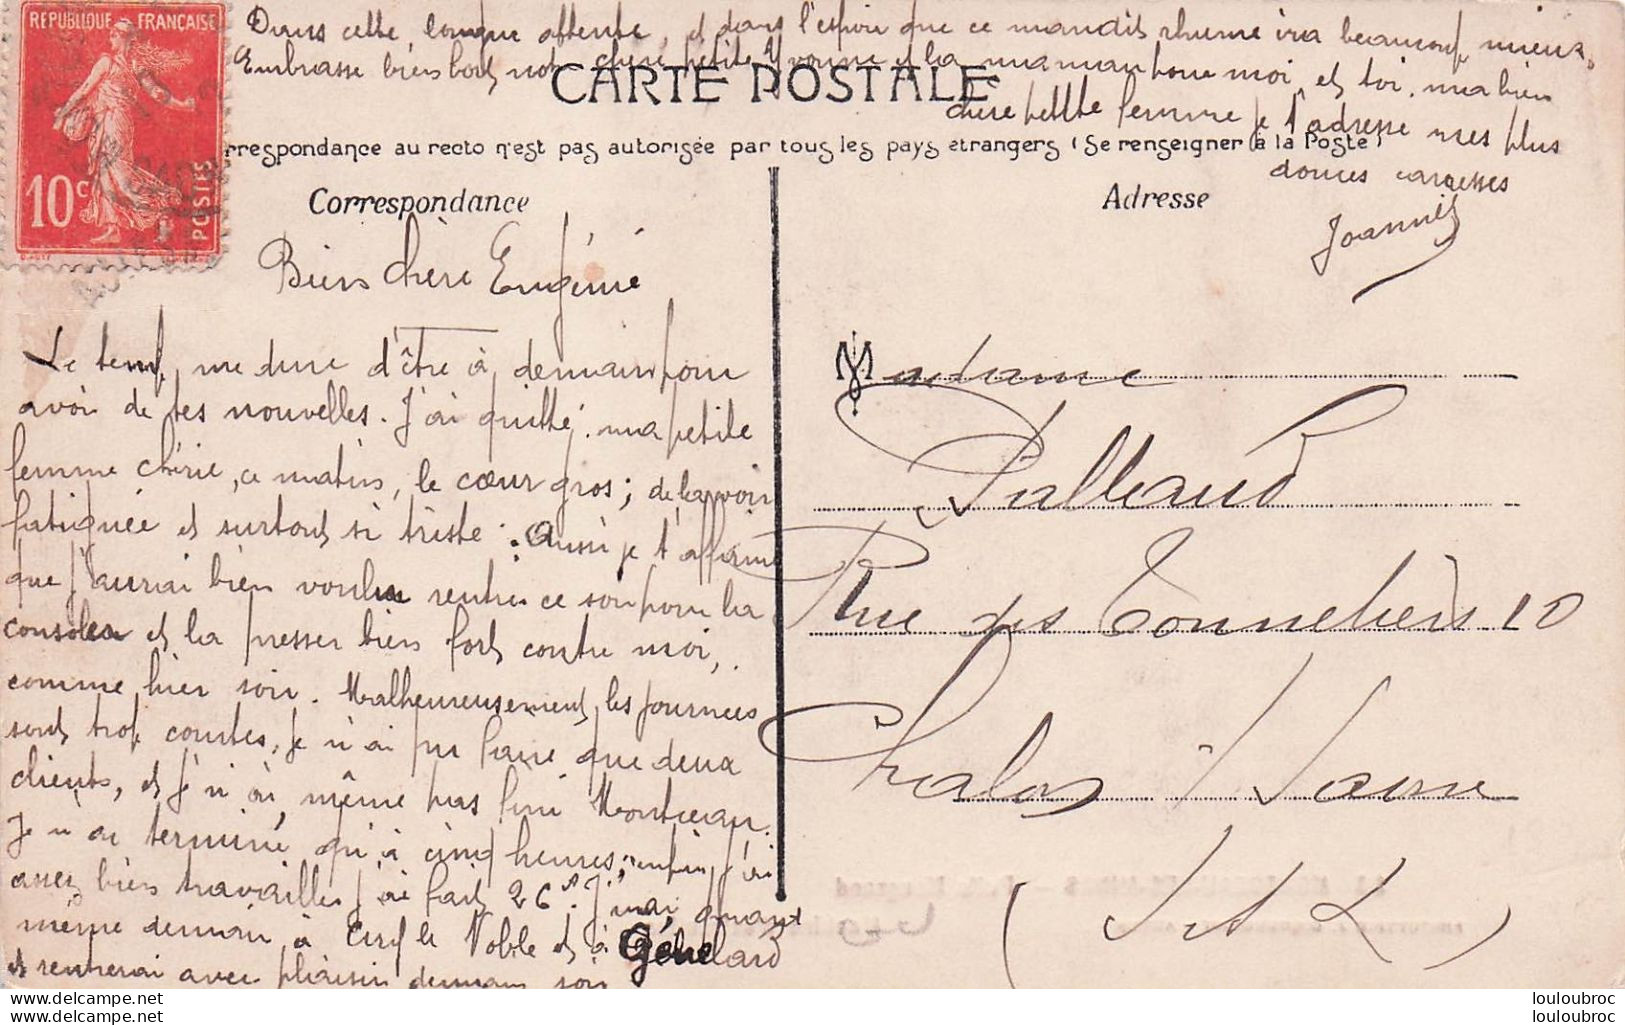 RÉPUBLIQUE FRANÇAISE
10c POSTES
Dans cette longue attente, et dans l'espoir que ce maudit rhume ira beaucoup mieux,
Embrasse bien fort notre chère petite Yvonne et la maman pour moi, et toi, ma bien
CARTE POSTALE
chère petite femme je t'adresse mes plus
respondance au recto n'est pas autorisée par tous les pays étrangers (Se renseigner à la Poste)
douces caresses
Joannis
Correspondance
Adresse
Bien chère Eugénie
Le temps me dure d'être à demain pour
avoir de tes nouvelles. J'ai quitté ma petite
femme chérie, ce matin, le cœur gros; de la voir
fatiguée et surtout si triste: Aussi je t'affirme
que j'aurai bien voulu rentrer ce soir pour la
consoler et la presser bien fort contre moi,
comme hier soir. Malheureusement les journées
sont trop courtes, je n'ai pu faire que deux
clients, et je n'ai même pas fini Montceau.
Je n'ai terminé qu'à cinq heures; enfin j'ai
assez bien travaillé, j'ai fait 26 J'irai quand
même demain à Ciry le Noble et à Génelard
et rentrerai avec plaisir demain soir
Madame
Palleaud
Rue des Tonneliers 10
Chalon s/ Saone
(S et L)
delcampe.net
louloubroc
louloubroc